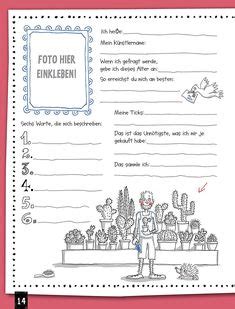 Ich heiße:
Mein Künstlername:
FOTO HIER
EINKLEBEN!
Wenn ich gefragt werde,
gebe ich dieses Alter an:
So erreichst du mich am besten:
Meine Ticks:
Sechs Worte, die mich beschreiben:
1.
2.
3.
4.
5.
6.
Das ist das Unnötigste, was ich mir je
gekauft habe:
Das sammle ich:
14